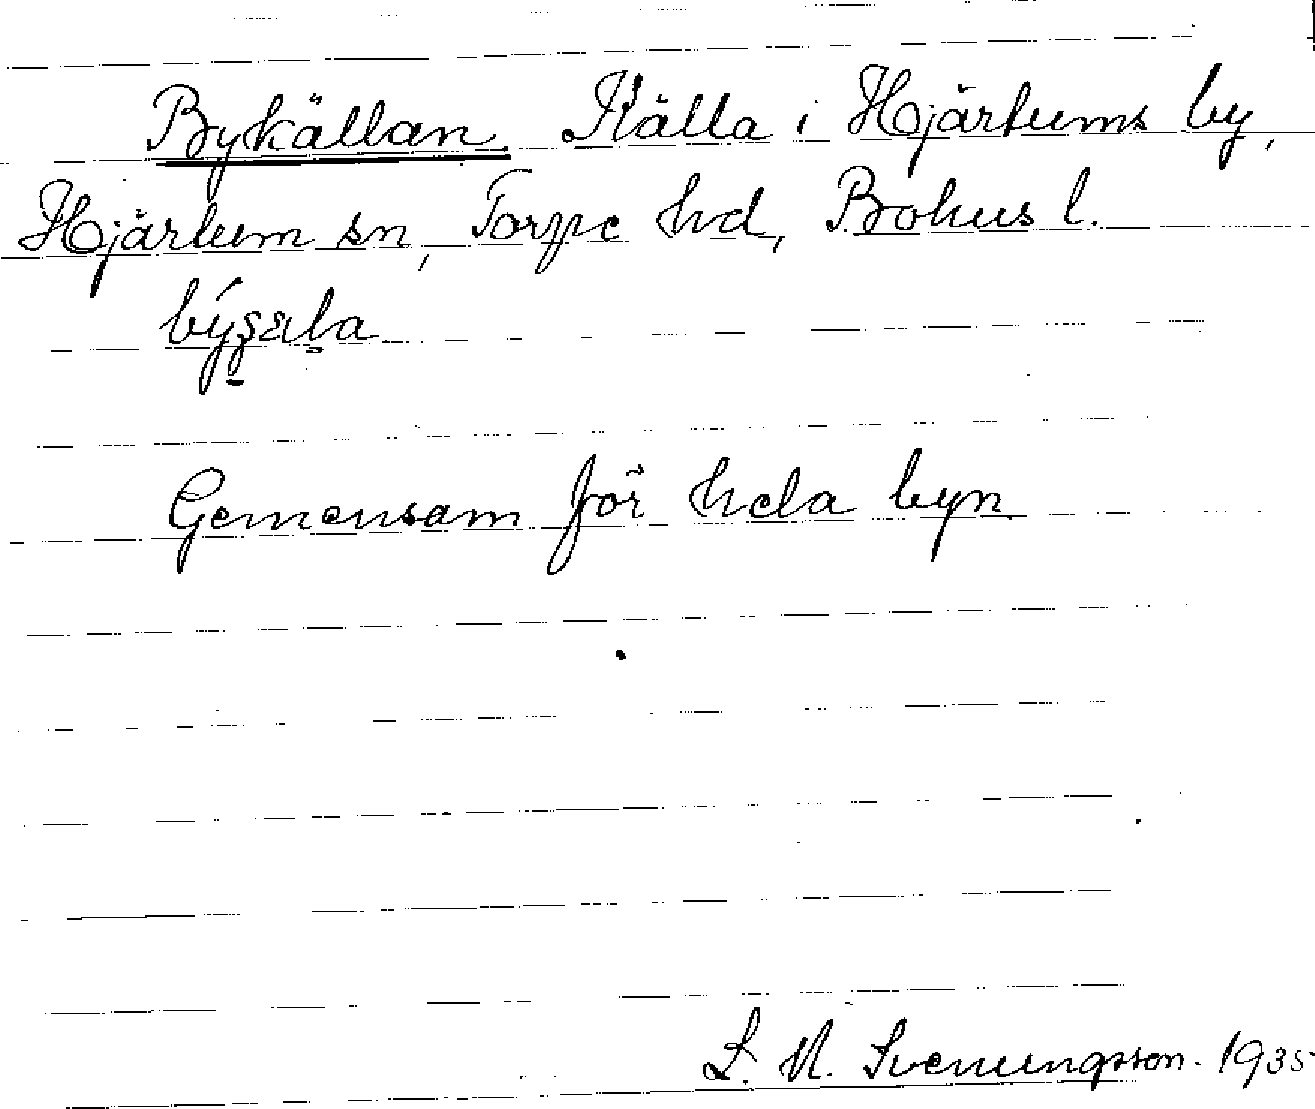 Bykällan. Källa i Hjärtums by,
Hjärtum sn, Torpe hd, Bohus l.
Gemensam för hela byn
S. M. Svenungsson. 1935